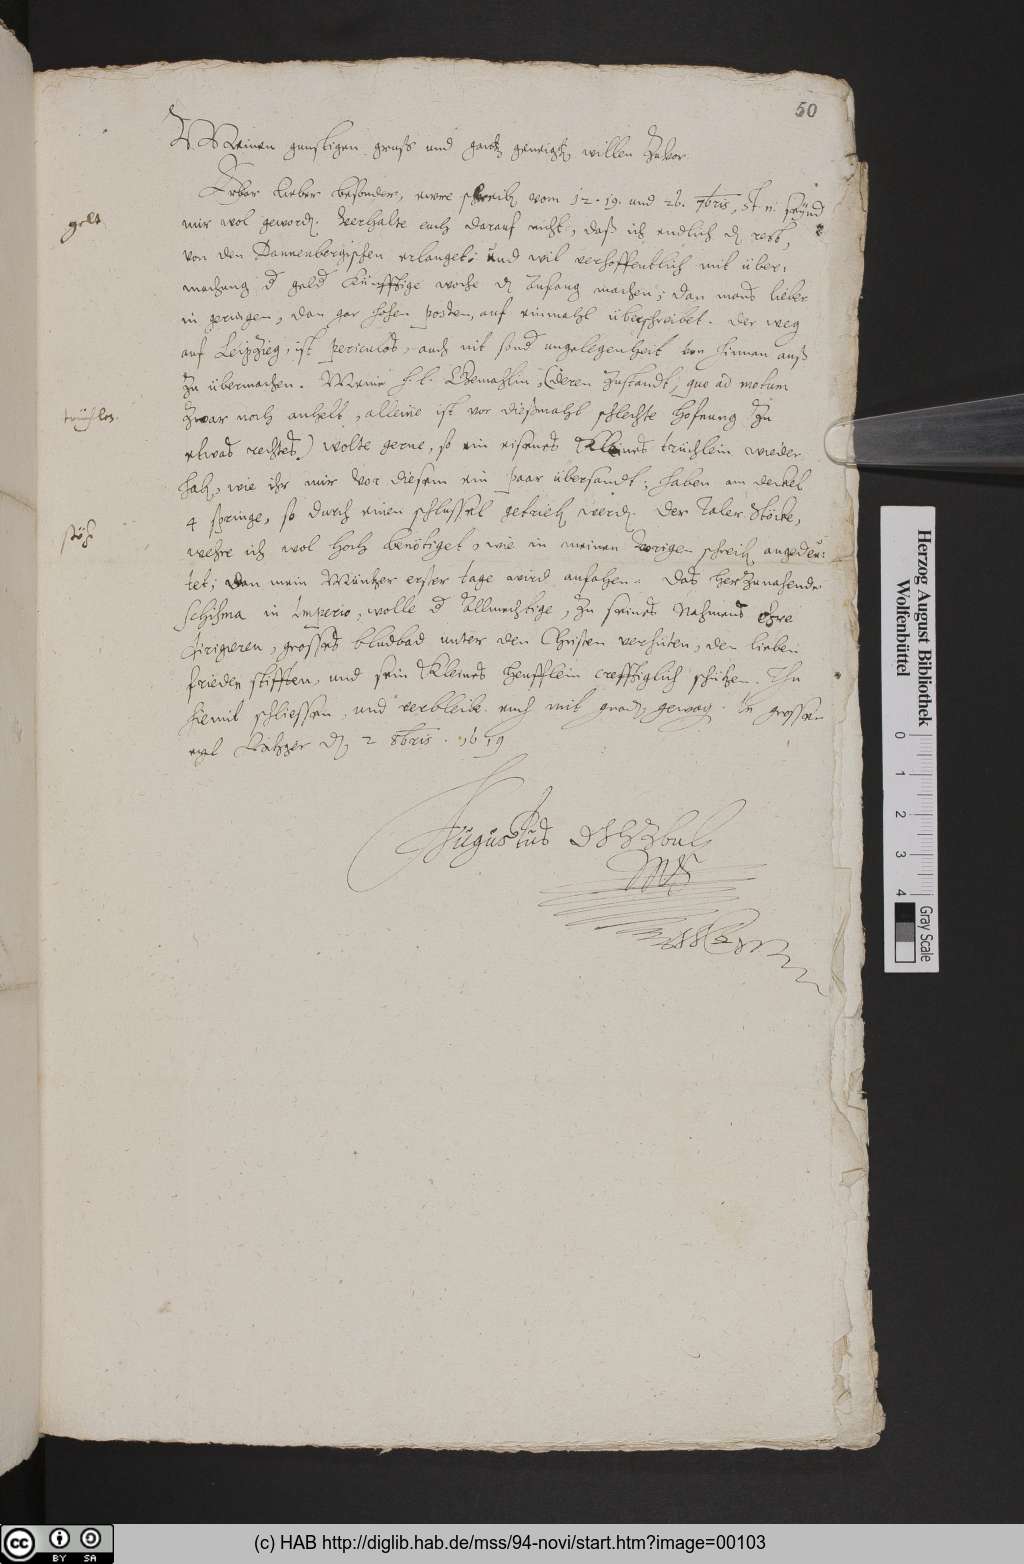 50
Meinen gunstigen gruß und gantz geneigtz willen zuvor
Erbar lieber besonder, ewre schreib vom 12. 19. und 26. 7bris, st. n. seynd
gelt
mir wol geword. Verhalte euch darauf nicht, daß ich endlich d rest,
von den Dannenbergischen erlanget; und wil verhoffentlich mit über:
machung d geld künfftige woche d Anfang machen; dan mans lieber
in geringen, dan gar hohen posten, auf einmahl überschreibet. Der weg
auf Leipzieg, ist periculos, auch nit sond ungelegenheit von hinnen auß
zu übermachen. Meine h. l. Gemahlin, (deren zustandt, quo ad motum
trüchlen
zwar noch anhelt, alleine ist vor dießmahl schlechte hofnung zu
etwas rechtes) wolte gerne, so ein eisenes kleines trüchlein wieder
hab, wie ihr mir vor diesem ein paar übersandt; haben am deckel
4 springe, so durch einen schlussel getrieb werd. Der Taler Stöcke,
stöck
wehre ich wol hoch benötiget, wie in meinen vorigen schreib angedeu:
tet; dan mein Müntzer erster tage wird anfahen. Das herzunahende
Schisma in Imperio, wolle d Allmechtige, zu seines Nahmens ehre
dirigieren, grosses bludbad unter den Christen verhüten, den lieben
frieden stifften, und sein kleines heufflein crefftiglich schützen. Thu
hiemit schliessen, und verbleibe euch mit gnad gewog. In grossen
eyl Ratzeb d 2 8bris. 1619
Augustus
Herzog August Bibliothek
Wolfenbüttel
0 1 2 3 4
Gray Scale
(c) HAB http://diglib.hab.de/mss/94-novi/start.htm?image=00103
CC BY SA